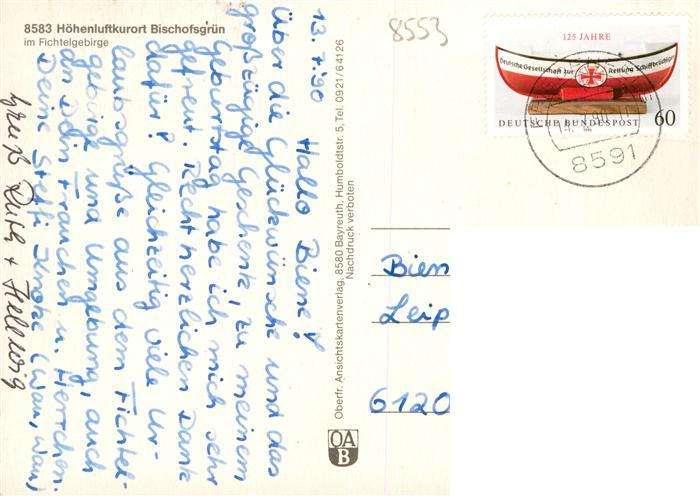 8583 Höhenluftkurort Bischofsgrün
im Fichtelgebirge
8553
13.7.90
Hallo Biene!
Über die Glückwünsche und das
großzügige Geschenk, zu meinem
Geburtstag habe ich mich sehr
gefreut. Recht herzlichen Dank
dafür! Gleichzeitig viele Ur-
laubsgrüße aus dem Fichtel-
gebirge und Umgebung, auch
an Dein Frauchen u. Herrchen.
Deine Steffi (Wau, Wau)
Gruß Ruth + Hellwig
Oberfr. Ansichtskartenverlag, 8580 Bayreuth, Humboldtstr. 5, Tel. 0921/64126
Nachdruck verboten
OA
B
125 JAHRE
Deutsche Gesellschaft zur Rettung Schiffbrüchiger
DEUTSCHE BUNDESPOST 60
8591
Bien
Leip
6120